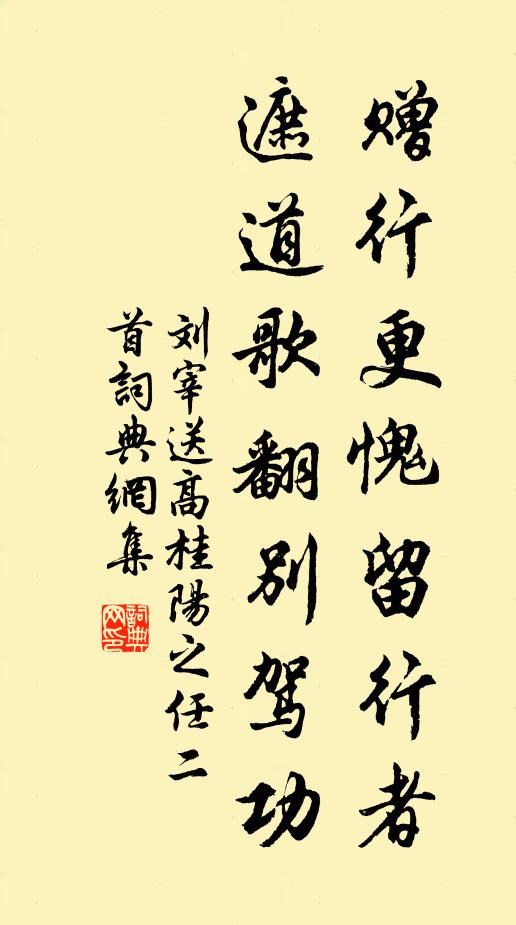 赠行更愧留行者
遮道歌翻别驾功
刘宰送高桂陽之任二
首詞典網集
詞典网印